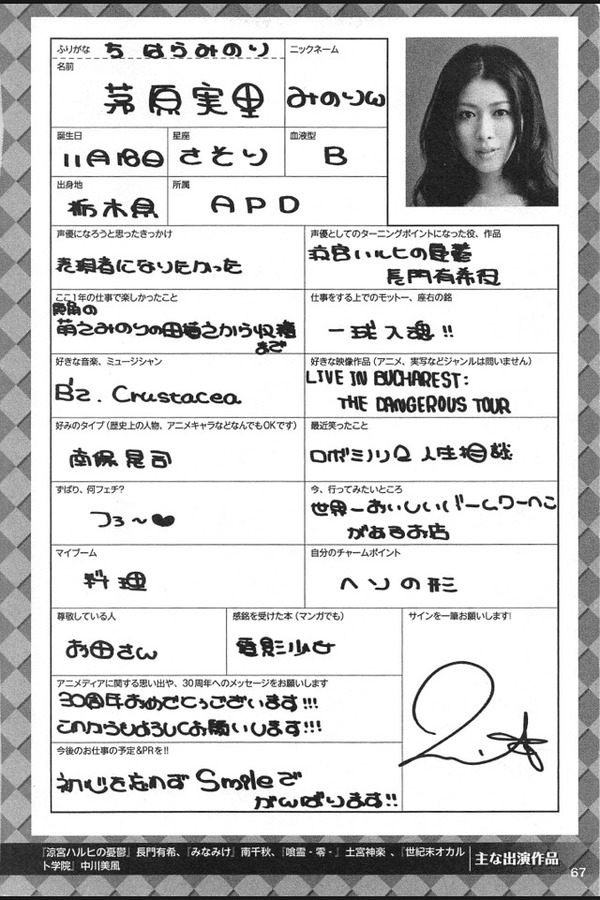 ふりがな ちはらみのり
ニックネーム
名前 茅原実里
みのりん
誕生日 11月18日
星座 さそり
血液型 B
出身地 栃木県
所属 APD
声優になろうと思ったきっかけ
表現者になりたかった
声優としてのターニングポイントになった役、作品
涼宮ハルヒの憂鬱
長門有希役
ここ1年の仕事で楽しかったこと
萌えみのりの田植えから収穫
まで
仕事をする上でのモットー、座右の銘
一球入魂!!
好きな音楽、ミュージシャン
B'z. Crustacea
好きな映像作品(アニメ、実写などジャンルは問いません)
LIVE IN BUCHAREST:
THE DANGEROUS TOUR
好みのタイプ(歴史上の人物、アニメキャラなどなんでもOKです)
南保晃司
最近笑ったこと
人生相談
ずばり、何フェチ?
つろ〜♥
今、行ってみたいところ
世界一おいしいバームクーヘン
があるお店
マイブーム
料理
自分のチャームポイント
ヘソの形
尊敬している人
お田さん
感銘を受けた本(マンガでも)
電影少女
サインを一筆お願いします!
アニメディアに関する思い出や、30周年へのメッセージをお願いします
30周年おめでとうございます!!!
これからもよろしくお願いします!!!
今後のお仕事の予定&PRを!!
初心を忘れず Smileで
がんばります!!
『涼宮ハルヒの憂鬱』長門有希、『みなみけ』南千秋、『喰霊-零-』土宮神楽、『世紀末オカル
ト学院』中川美風
主な出演作品
67